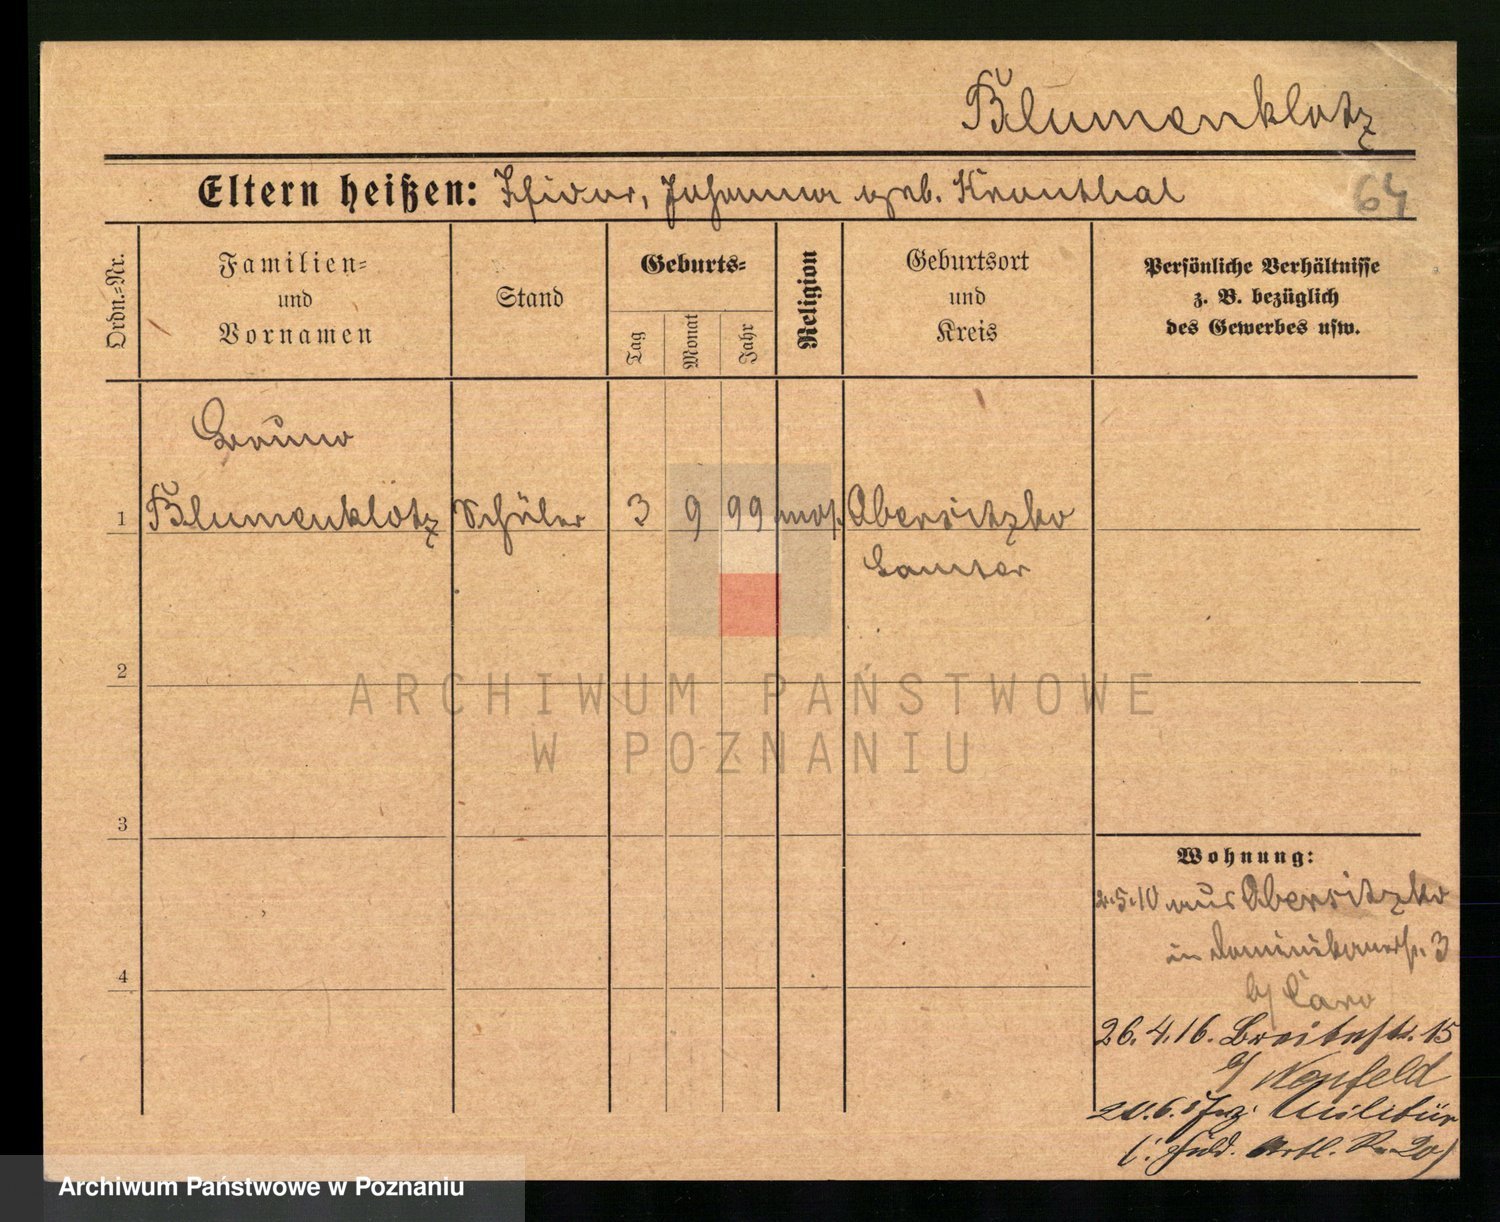 Blumenklotz
Eltern heißen: Isidor, Johanna geb. Kronthal
64
Ordn.=Nr.
Familien=
und
Vornamen
Stand
Geburts=
Tag
Monat
Jahr
Religion
Geburtsort
und
Kreis
Persönliche Verhältnisse
z. B. bezüglich
des Gewerbes usw.
Bruno
1 Blumenklotz Schüler 3 9 99 mos. Obersitzko
Samter
2
3
4
ARCHIWUM PAŃSTWOWE
W POZNANIU
Wohnung:
2.5.10 aus Obersitzko
in Dominikanerstr. 3
b/ Caro
26.4.16. Breitestr. 15
b/ Neufeld
20.6. z. Militär
(: Feld. Artl. R. 20)
Archiwum Państwowe w Poznaniu